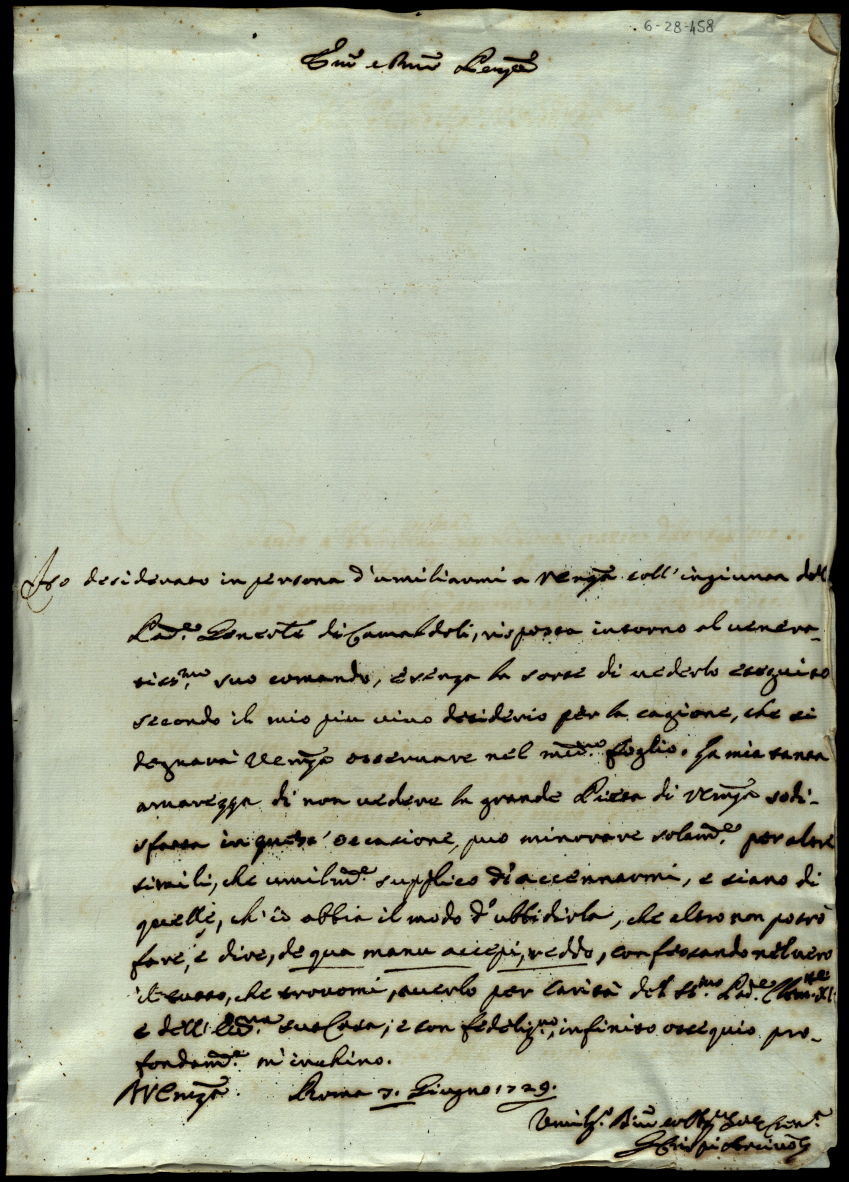 6-28-458
Em̃o e Rmõ Prenpẽ
Ho desiderato in persona d'umiliarmi a Vemzã coll'ingiunta del
Pad.e Gen̄erle di Camaldoli, risposta intorno al venera-
tiss.mo suo comando, e senza la sorte di vederlo eseguito
secondo il mio piu vivo desiderio per la cagione, che si
degnarà Vemzã osservare nel med.mo foglio. La mia tanta
amarezza di non vedere la grande Pietà di Vemzã sodi-
sfatta in questa occasione, può minorare solam.e per altre
simili, che umilm.e supplico d'accennarmi, e siano di
quelle, ch'io abbia il modo d'ubbidirla, che altro non potrò
fare, e dire, de qua manu accepi, reddo, confessando nel vero
il tutto, che trovomi, averlo per carità del St.mo Pad.e Clem.te XI.
e dell' Ecc.ma sua Casa; e con fedeliss.mo, infinito ossequio pro-
fondam.e m'inchino.
A Vemzã. Roma 7. Giugno 1729.
Umiliss.o Divmo ed Obblmo Ser.